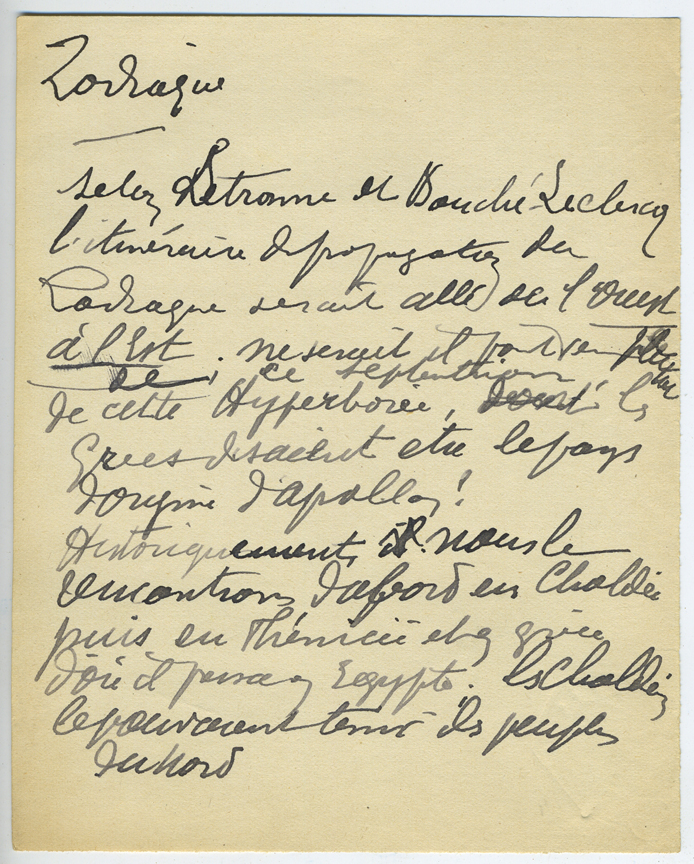 Zodiaque
selon Letronne et Bouché-Leclercq
l'itinéraire de propagation du
Zodiaque serait allé de l'Ouest
à l'Est. ne serait il point venu
de ce septentrion
de cette Hyperborée, dont les
Grecs disaient etre le pays
d'origine d'apollon!
Historiquement, nous le
rencontrons d'abord en Chaldée
puis en Phénicie et en grèce
d'où il passa en Egypte. les Chaldéens
le pouvaient tenir des peuples
du Nord